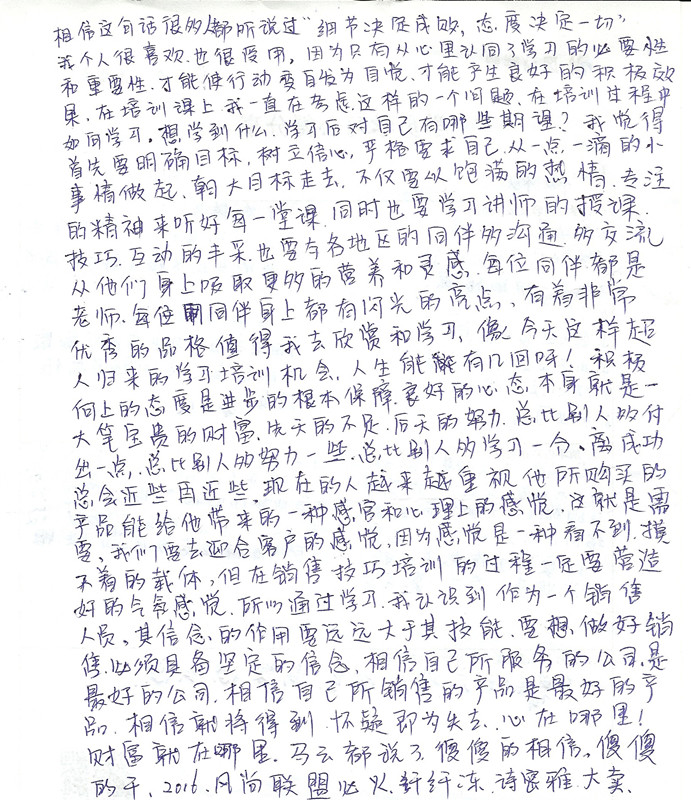 相信这句话很多人都听说过“细节决定成败，态度决定一切”
我个人很喜欢也很受用，因为只有从心里认同了学习的必要性
和重要性，才能使行动变自发为自觉，才能产生良好的积极效
果，在培训课上我一直在考虑这样的一个问题，在培训过程中
如何学习，想学到什么，学习后对自己有哪些期望？我觉得
首先要明确目标，树立信心，严格要求自己，从一点一滴的小
事情做起，朝大目标走去，不仅要以饱满的热情，专注
的精神来听好每一堂课，同时也要学习讲师的授课
技巧，互动的丰采，也要与各地区的同伴多沟通，多交流
从他们身上吸取更多的营养和灵感，每位同伴都是
老师，每位同伴身上都有闪光的亮点，有着非常
优秀的品格值得我去欣赏和学习，像今天这样超
人归来的学习培训机会，人生能有几回呀！积极
向上的态度是进步的根本保障，良好的心态，本身就是一
大笔宝贵的财富，先天的不足，后天的努力，总比别人多付
出一点，总比别人多努力一些，总比别人多学习一分，离成功
总会近些再近些，现在的人越来越重视他所购买的
产品能给他带来的一种感官和心理上的感觉，这就是需
要，我们要去迎合客户的感觉，因为感觉是一种看不到，摸
不着的载体，但在销售技巧培训的过程一定要营造
好的气氛感觉，所以通过学习，我认识到作为一个销售
人员，其信念的作用要远远大于其技能，要想做好销
售，必须具备坚定的信念，相信自己所服务的公司是
最好的公司，相信自己所销售的产品是最好的产
品，相信就将得到，怀疑即为失去，心在哪里！
财富就在哪里，马云都说了傻傻的相信，傻傻
的干，2016，风尚联盟必火，纤纤冻，诗密雅大卖，